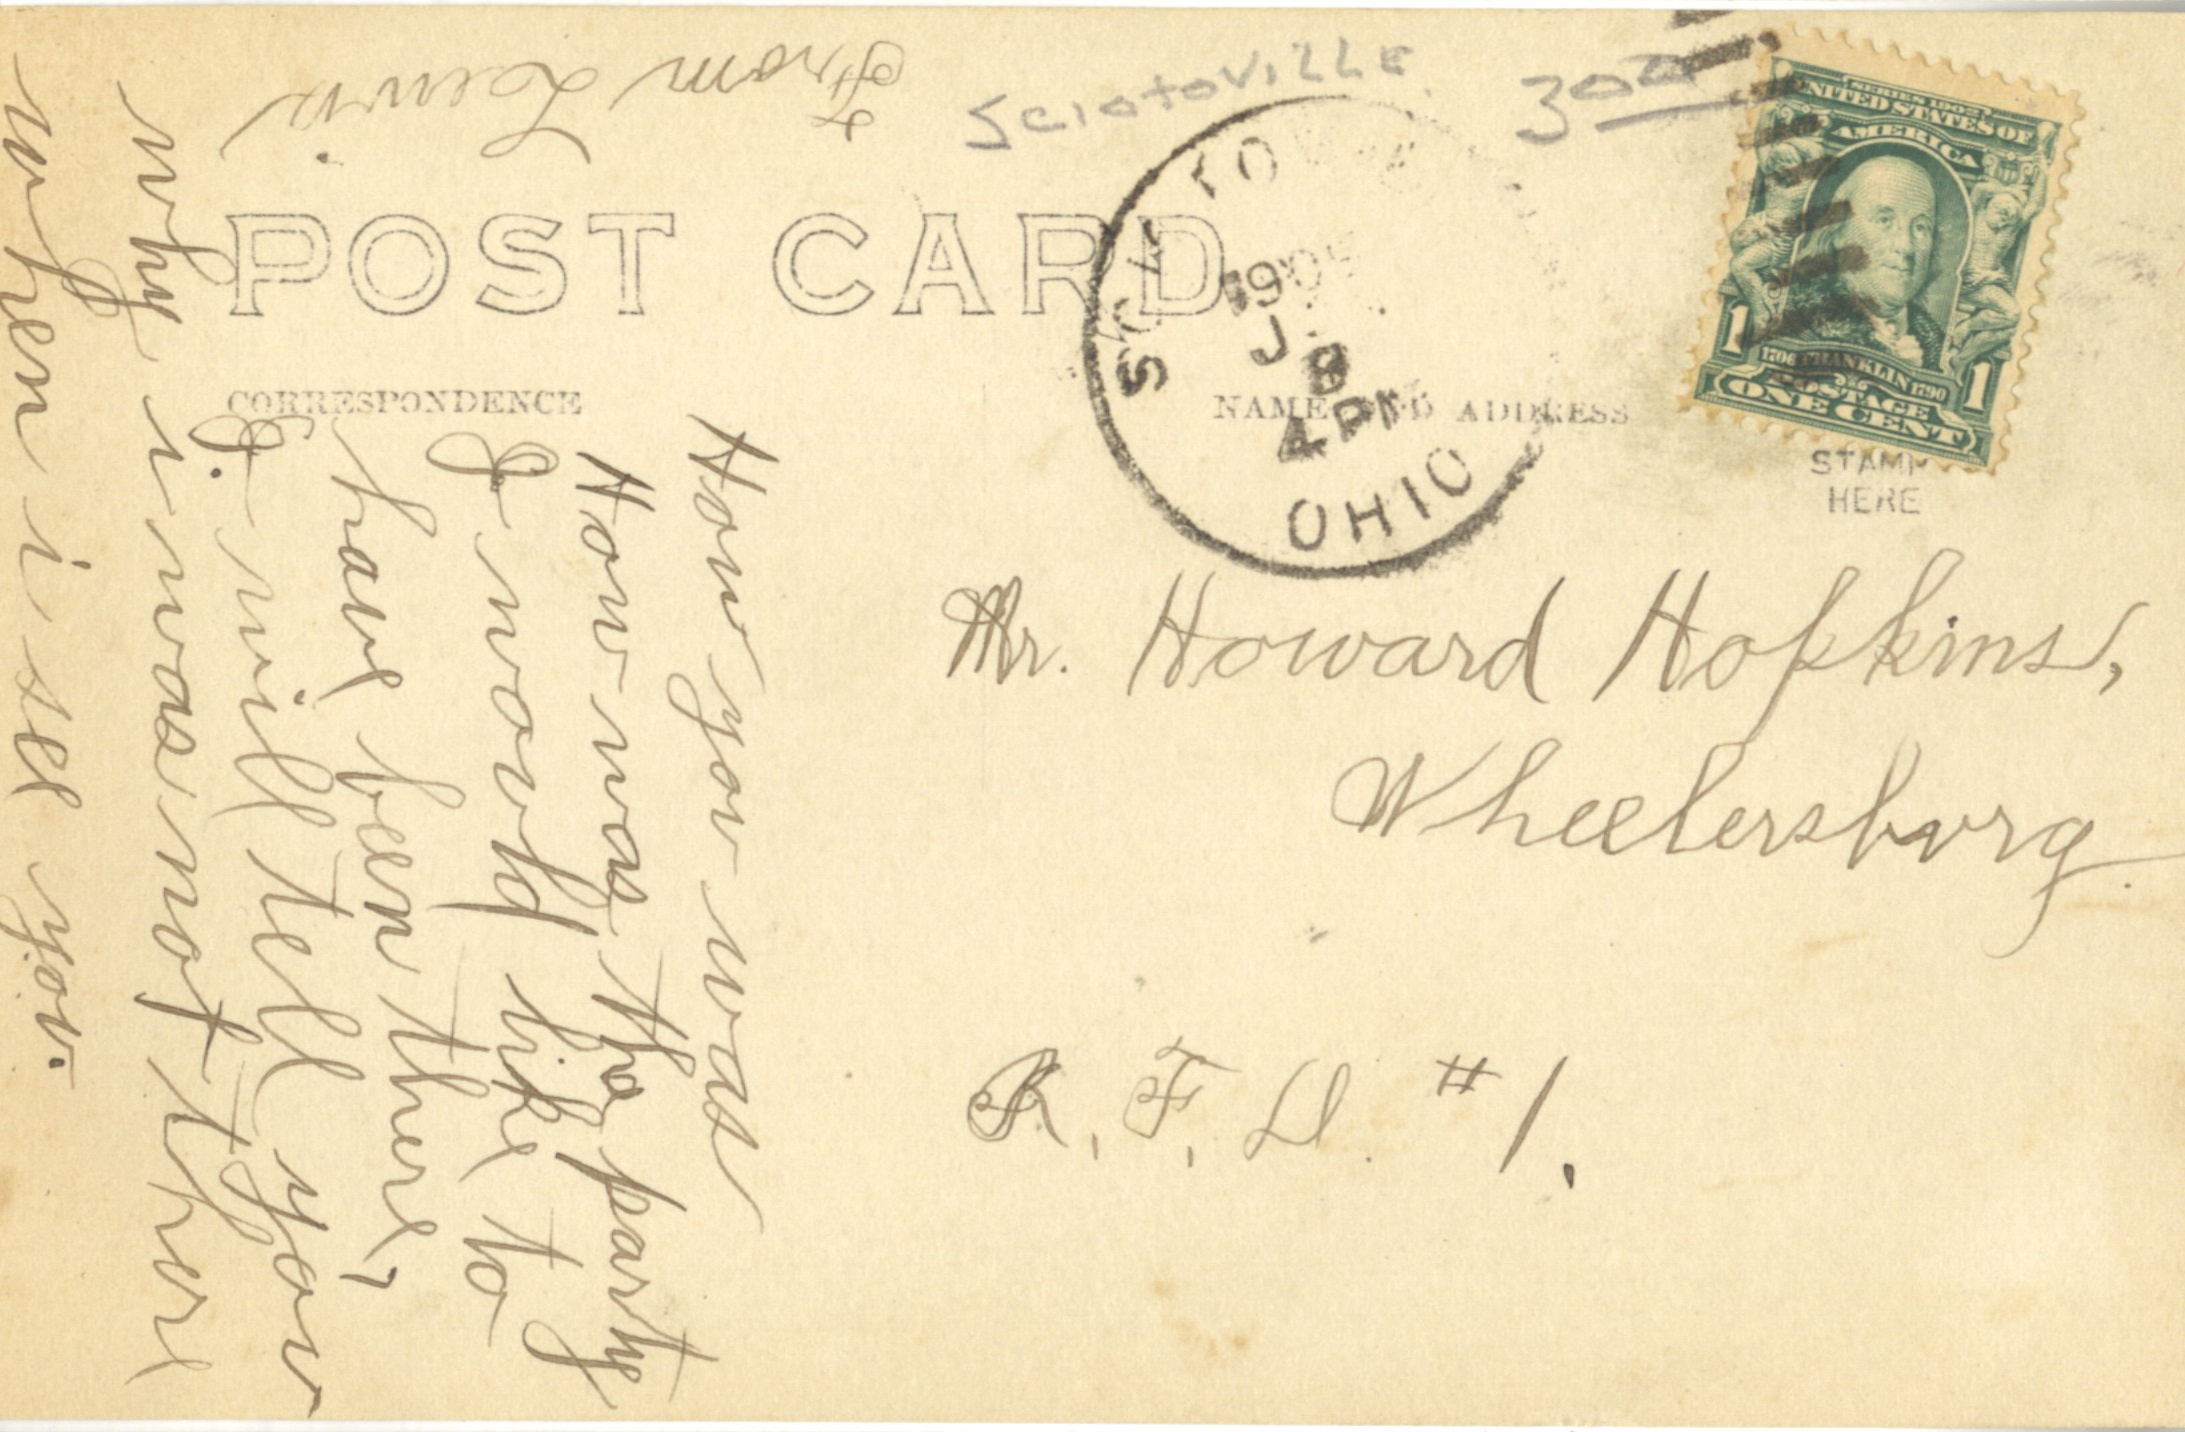 From Lewis.
Sciotoville
30
POST CARD
CORRESPONDENCE
NAME AND ADDRESS
SCIOTO
190
J
8
4 PM
OHIO
SERIES 1902
UNITED STATES OF
AMERICA
1706 FRANKLIN 1790
POSTAGE
1 ONE CENT 1
STAMP
HERE
Mr. Howard Hopkins,
Wheelersburg.
R. F. D. #1.
How you was
How was the party
I would like to
have been there,
I will tell you
why i was not there
when i see you.